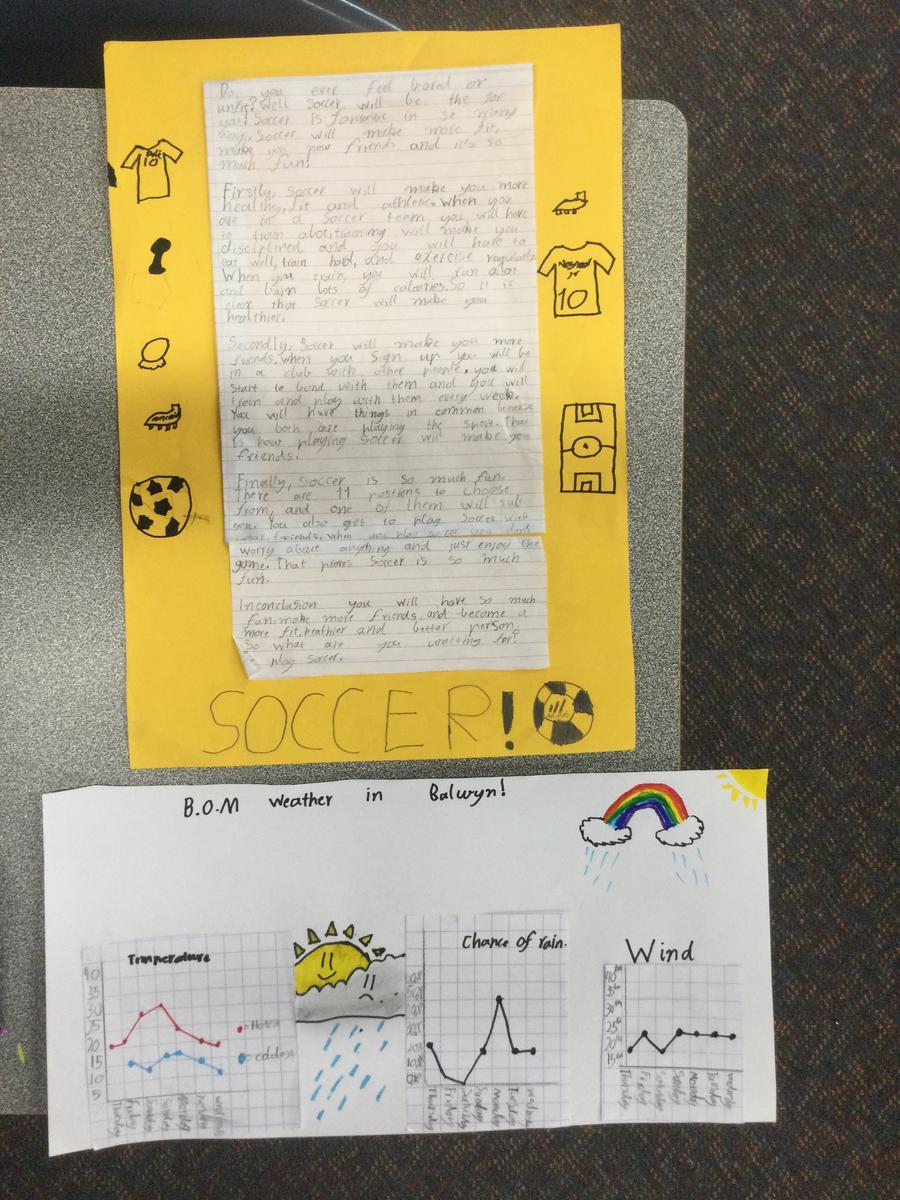 Do you ever feel bored or
unfit? Well Soccer will be the for
you! Soccer is fantastic in so many
way. Soccer will make more fit,
make you new friends and it's so
much fun!
Firstly, Soccer will make you more
healthy, fit and athletic. When you
are in a Soccer team you will have
to train alot, training will make you
disciplined and you will have to
eat well, train hard, and exercise regularly
When you train, you will run alot
and burn lots of calories. So it is
clear that Soccer will make you
healthier.
Secondly, Soccer will make you more
friends. When you Sign up you will be
in a club with other people, you will
Start to bond with them and you will
train and play with them every week.
You will have things in common because
you both are playing the sport. That
is how playing Soccer will make you
friends.
Finally, Soccer is so much fun.
There are 11 to choose
from, and one of them will suit
you. You also get to play Soccer with
your friends. When you play soccer you don't
worry about anything and just enjoy the
game. That proves Soccer is so much
fun.
Inconclusion you will have so much
fun, make more friends and become a
more fit, heathier and better person.
So what are you waiting for?
play Soccer.
10
Neymar
Jr
10
SOCCER!
B.O.M weather in Balwyn!
Temperature
40
35
30
25
20
15
10
5
Thursday
Friday
Sunday
Monday
Chance of rain.
Thursday
Friday
Saturday
Sunday
Monday
Tuesday
Wind
40
35
30
25
20
15
Thursday
Friday
Saturday
Sunday
Monday
Tuesday